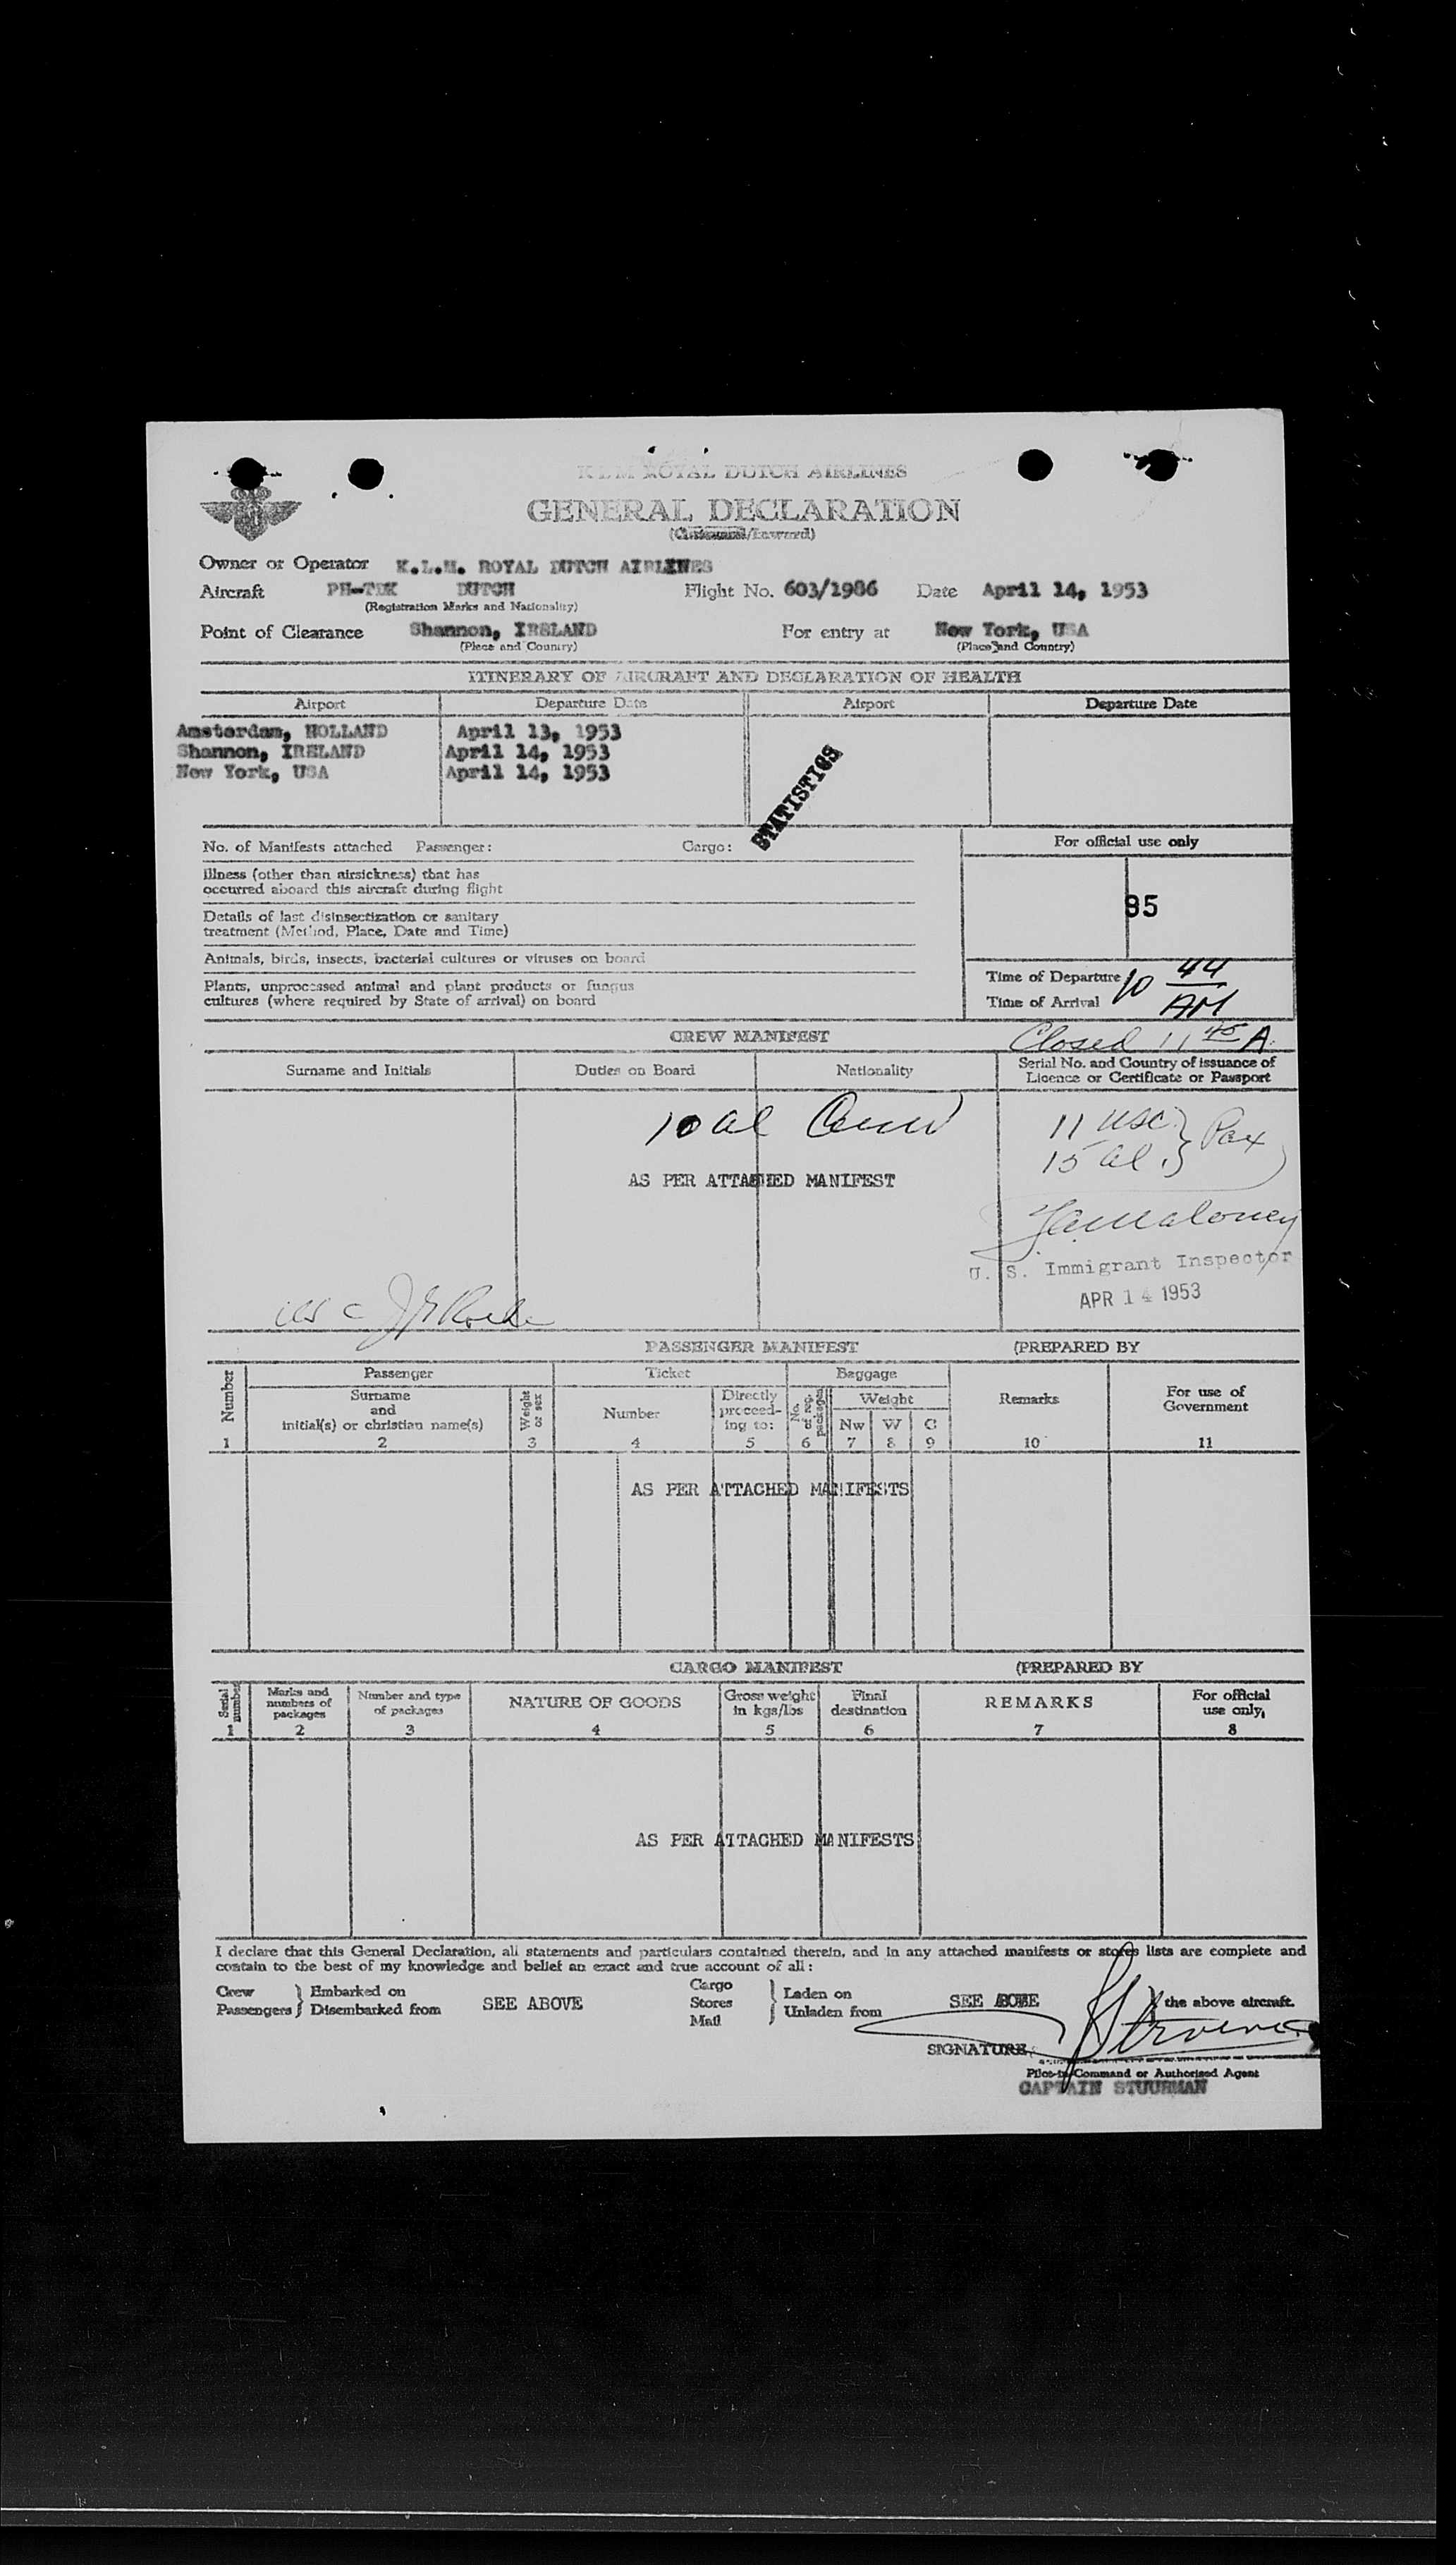 K.L.M ROYAL DUTCH AIRLINES
GENERAL DECLARATION
(Outward/Inward)
Owner or Operator K.L.M. ROYAL DUTCH AIRLINES
Aircraft PH-TDK DUTCH Flight No. 603/1986 Date April 14, 1953
(Registration Marks and Nationality)
Point of Clearance Shannon, IRELAND For entry at New York, USA
(Place and Country) (Place and Country)
ITINERARY OF AIRCRAFT AND DECLARATION OF HEALTH
Airport Departure Date Airport Departure Date
Amsterdam, HOLLAND April 13, 1953
Shannon, IRELAND April 14, 1953
New York, USA April 14, 1953
STATISTICS
No. of Manifests attached Passenger: Cargo: For official use only
Illness (other than airsickness) that has
occurred aboard this aircraft during flight
85
Details of last disinsectization or sanitary
treatment (Method, Place, Date and Time)
Animals, birds, insects, bacterial cultures or viruses on board
Plants, unprocessed animal and plant products or fungus
cultures (where required by State of arrival) on board
Time of Departure
Time of Arrival 10 44 AM
CREW MANIFEST Closed 11 45 A.
Surname and Initials Duties on Board Nationality Serial No. and Country of issuance of
Licence or Certificate or Passport
10 al Crew 11 USC } Pax
15 al. }
AS PER ATTACHED MANIFEST
U. S. Immigrant Inspector
APR 14 1953
PASSENGER MANIFEST (PREPARED BY
Number Passenger Ticket Baggage Remarks For use of
Government
Surname
and
initial(s) or christian name(s) Weight or sex Number Directly
proceed-
ing to: No. of reg. packages Weight
Nw W C
1 2 3 4 5 6 7 8 9 10 11
AS PER ATTACHED MANIFESTS
CARGO MANIFEST (PREPARED BY
Serial number Marks and
numbers of
packages Number and type
of packages NATURE OF GOODS Gross weight
in kgs/lbs Final
destination REMARKS For official
use only
1 2 3 4 5 6 7 8
AS PER ATTACHED MANIFESTS
I declare that this General Declaration, all statements and particulars contained therein, and in any attached manifests or stores lists are complete and
contain to the best of my knowledge and belief an exact and true account of all:
Crew } Embarked on
Passengers } Disembarked from SEE ABOVE
Cargo
Stores
Mail } Laden on
Unladen from SEE ABOVE } the above aircraft.
SIGNATURE
Pilot-in-Command or Authorised Agent
CAPTAIN STUURMAN